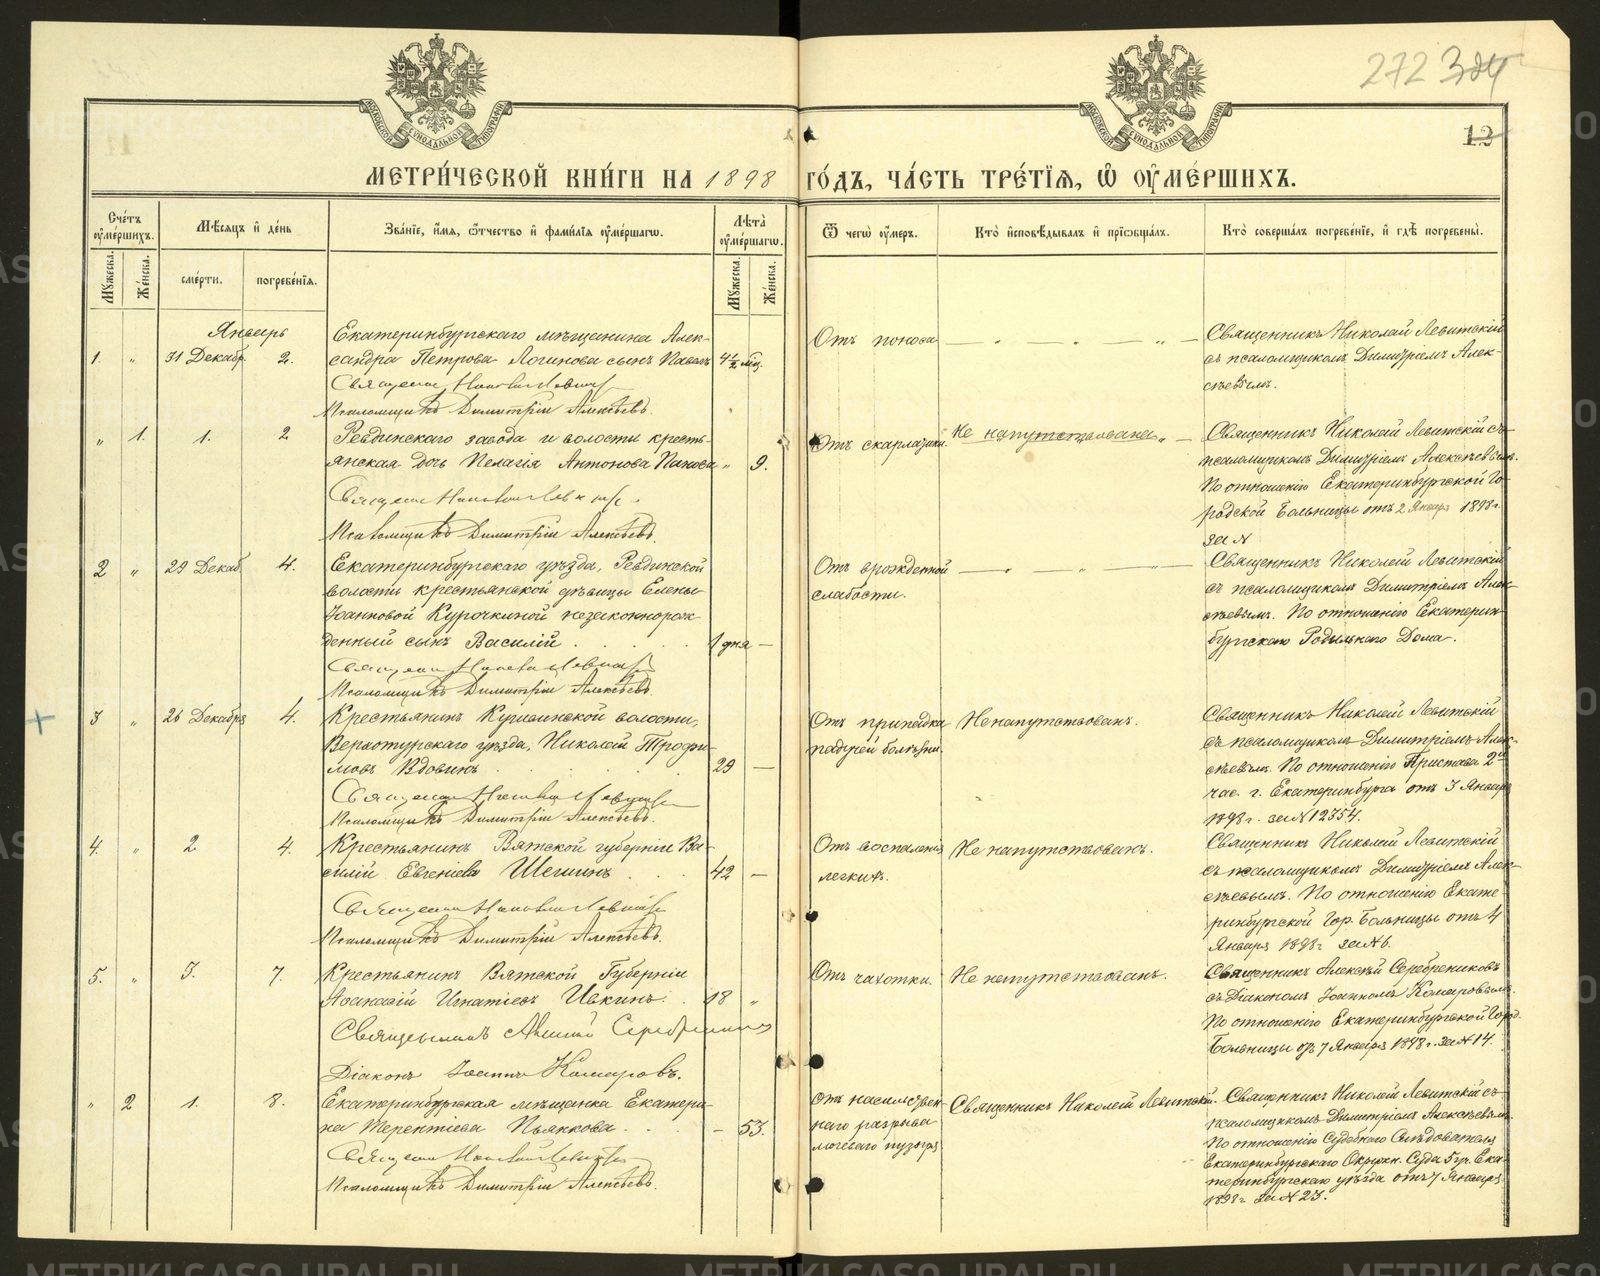 272
12
МЕТРИ́ЧЕСКОЙ КНИ́ГИ НА 1898 ГО́ДЪ, ЧА́СТЬ ТРЕ́ТІѦ, Ѡ ОУМЕ́РШИХЪ.
Сче́тъ оумершихъ.
Мѣ́сяцъ и де́нь
Зва́ніе, и́мя, ѻтчество и фами́лія оумершагѡ.
Лѣта̀ оумершагѡ.
Ѿ чегѡ оумеръ.
Кто̀ исповѣдывалъ и пріѡбща́лъ.
Кто̀ соверша́лъ погребе́ніе, и гдѣ̀ погребены̀.
Мужеска.
Же́нска.
сме́рти.
погребе́нія.
Мужеска.
Же́нска.
Январь
1. " 31 Декабр. 2.
Екатеринбургскаго мѣщанина Алек-
сандра Петрова Логинова сынъ Павелъ 4½ мѣс.
Псаломщикъ Димитрій Алексѣевъ.
Отъ поноса
Священникъ Николай Левитскій
съ псаломщикомъ Димитріемъ Алек-
сѣевымъ.
" 1. 1. 2
Ревдинскаго завода и волости кресть-
янская дочь Пелагія Антонова " 9.
Псаломщикъ Димитрій Алексѣевъ.
Отъ скарлатины.
Не напутствована
Священникъ Николай Левитскій съ
псаломщикомъ Димитріемъ Алексѣевымъ.
По отношенію Екатеринбургской Го-
родской Больницы отъ 2 Января 1898 г.
за №
2 " 29 Декаб. 4.
Екатеринбургскаго уѣзда, Ревдинской
волости крестьянской дѣвицы Елены
Іоанновой Курочкиной незаконнорож-
денный сынъ Василій 1 дня —
Псаломщикъ Димитрій Алексѣевъ.
Отъ врожденной
слабости.
Священникъ Николай Левитскій
съ псаломщикомъ Димитріемъ Алек-
сѣевымъ. По отношенію Екатерин-
бургскаго Родильнаго Дома.
3 " 26 Декабря 4.
Крестьянинъ волости,
Верхотурскаго уѣзда, Николай Трофи-
мовъ Вдовинъ 29 —
Псаломщикъ Димитрій Алексѣевъ.
Отъ припадка
падучей болѣзни.
Не напутствованъ.
Священникъ Николай Левитскій
съ псаломщикомъ Димитріемъ Алек-
сѣевымъ. По отношенію Пристава 2й
час. г. Екатеринбурга отъ 3 Января
1898 г. за № 12354.
4. " 2 4.
Крестьянинъ Вятской губерніи Ва-
силій Евгеніевъ 42 —
Псаломщикъ Димитрій Алексѣевъ.
Отъ воспаленія
легкихъ.
Не напутствованъ.
Священникъ Николай Левитскій
съ псаломщикомъ Димитріемъ Алек-
сѣевымъ. По отношенію Екате-
ринбургской Гор. Больницы отъ 4
Января 1898 г. за № 6.
5. " 5. 7.
Крестьянинъ Вятской Губерніи
Аѳанасій Игнатіевъ Ивкинъ 18 "
Священникъ Алексій Серебренников
Діаконъ Іоаннъ Комаровъ.
Отъ чахотки.
Не напутствованъ.
Священникъ Алексѣй Серебрениковъ
съ Діакономъ Іоанномъ Комаровымъ.
По отношенію Екатеринбургской Город.
Больницы отъ 7 Января 1898 г. за № 14.
" 2 1. 8.
Екатеринбургская мѣщанка Екатери-
на Терентіева Пьянкова — 53.
Псаломщикъ Димитрій Алексѣевъ.
Отъ насильствен-
наго разрыва
мочеваго пузыря
Священникъ Николай Левитскій
Священникъ Николай Левитскій съ
псаломщикомъ Димитріемъ Алексѣевымъ.
По отношенію Судебнаго Слѣдователя
Екатеринбургскаго Окружн. Суда 5 уч. Ека-
теринбургскаго уѣзда отъ 7 Января
1898 г. за № 23.
METRIKI.CASO-URAL.RU
METRIKI.CASO-URAL.RU